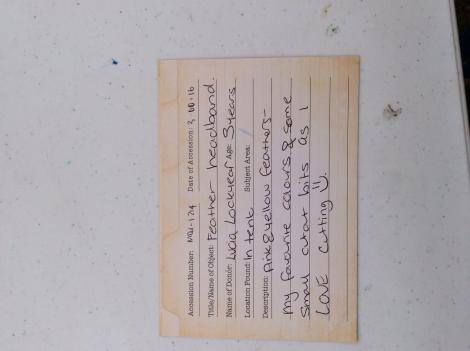 Accession Number: MW-124 Date of Accession: 3.60.16
Title/Name of Object: Feather headband.
Name of Donor: Lucia Lockyear Age: 3 years
Location Found: In tent Subject Area:
Description: Pink & yellow feathers -
my favourite colours & some
small cutout bits as I
LOVE cutting